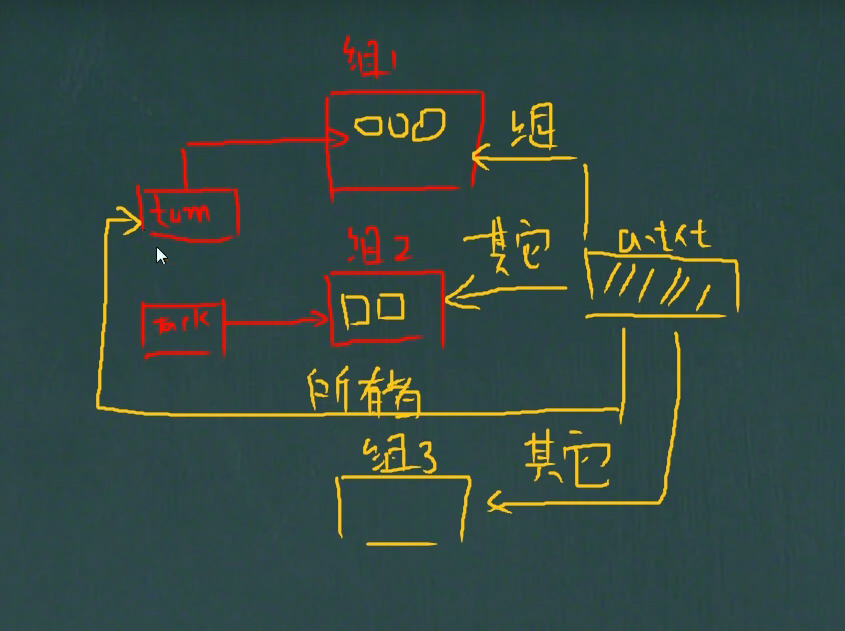 组1
组
tom
组2
其它
a.txt
Jack
所有者
组3
其它